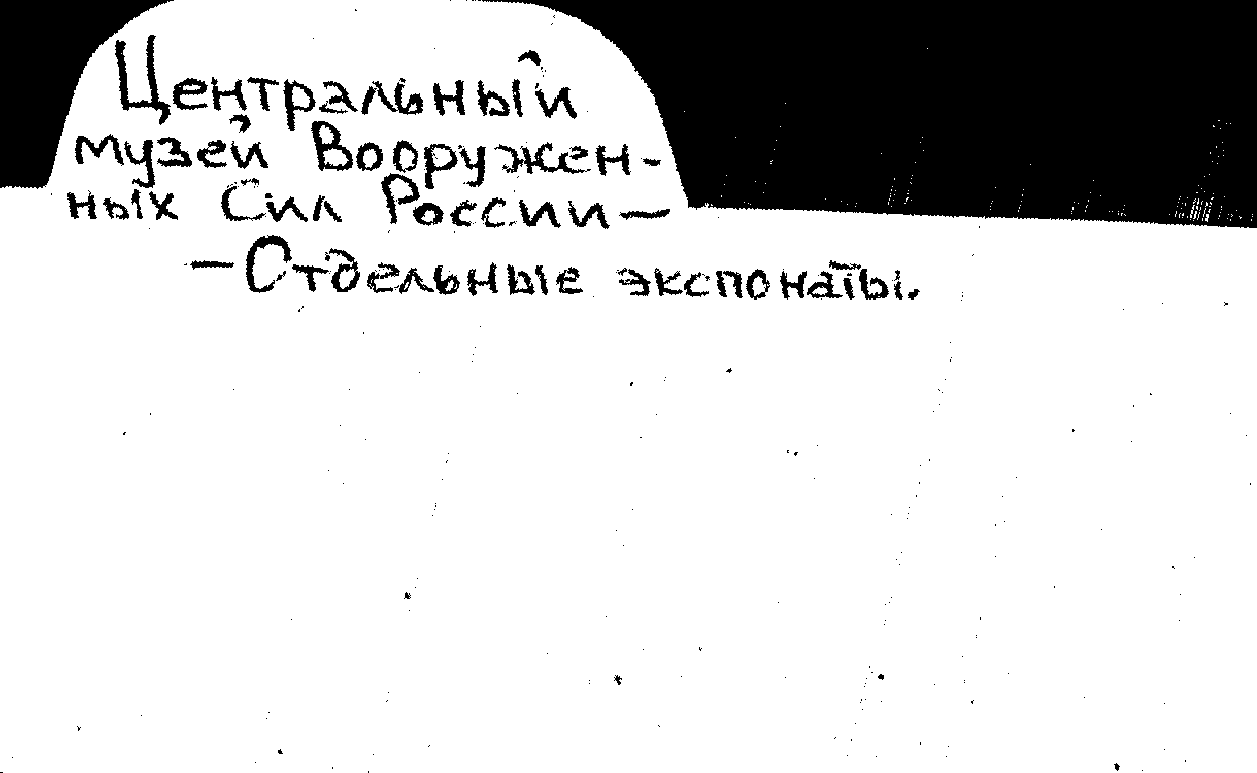 Центральный
музей Вооружен-
ных Сил России—
—Отдельные экспонаты.